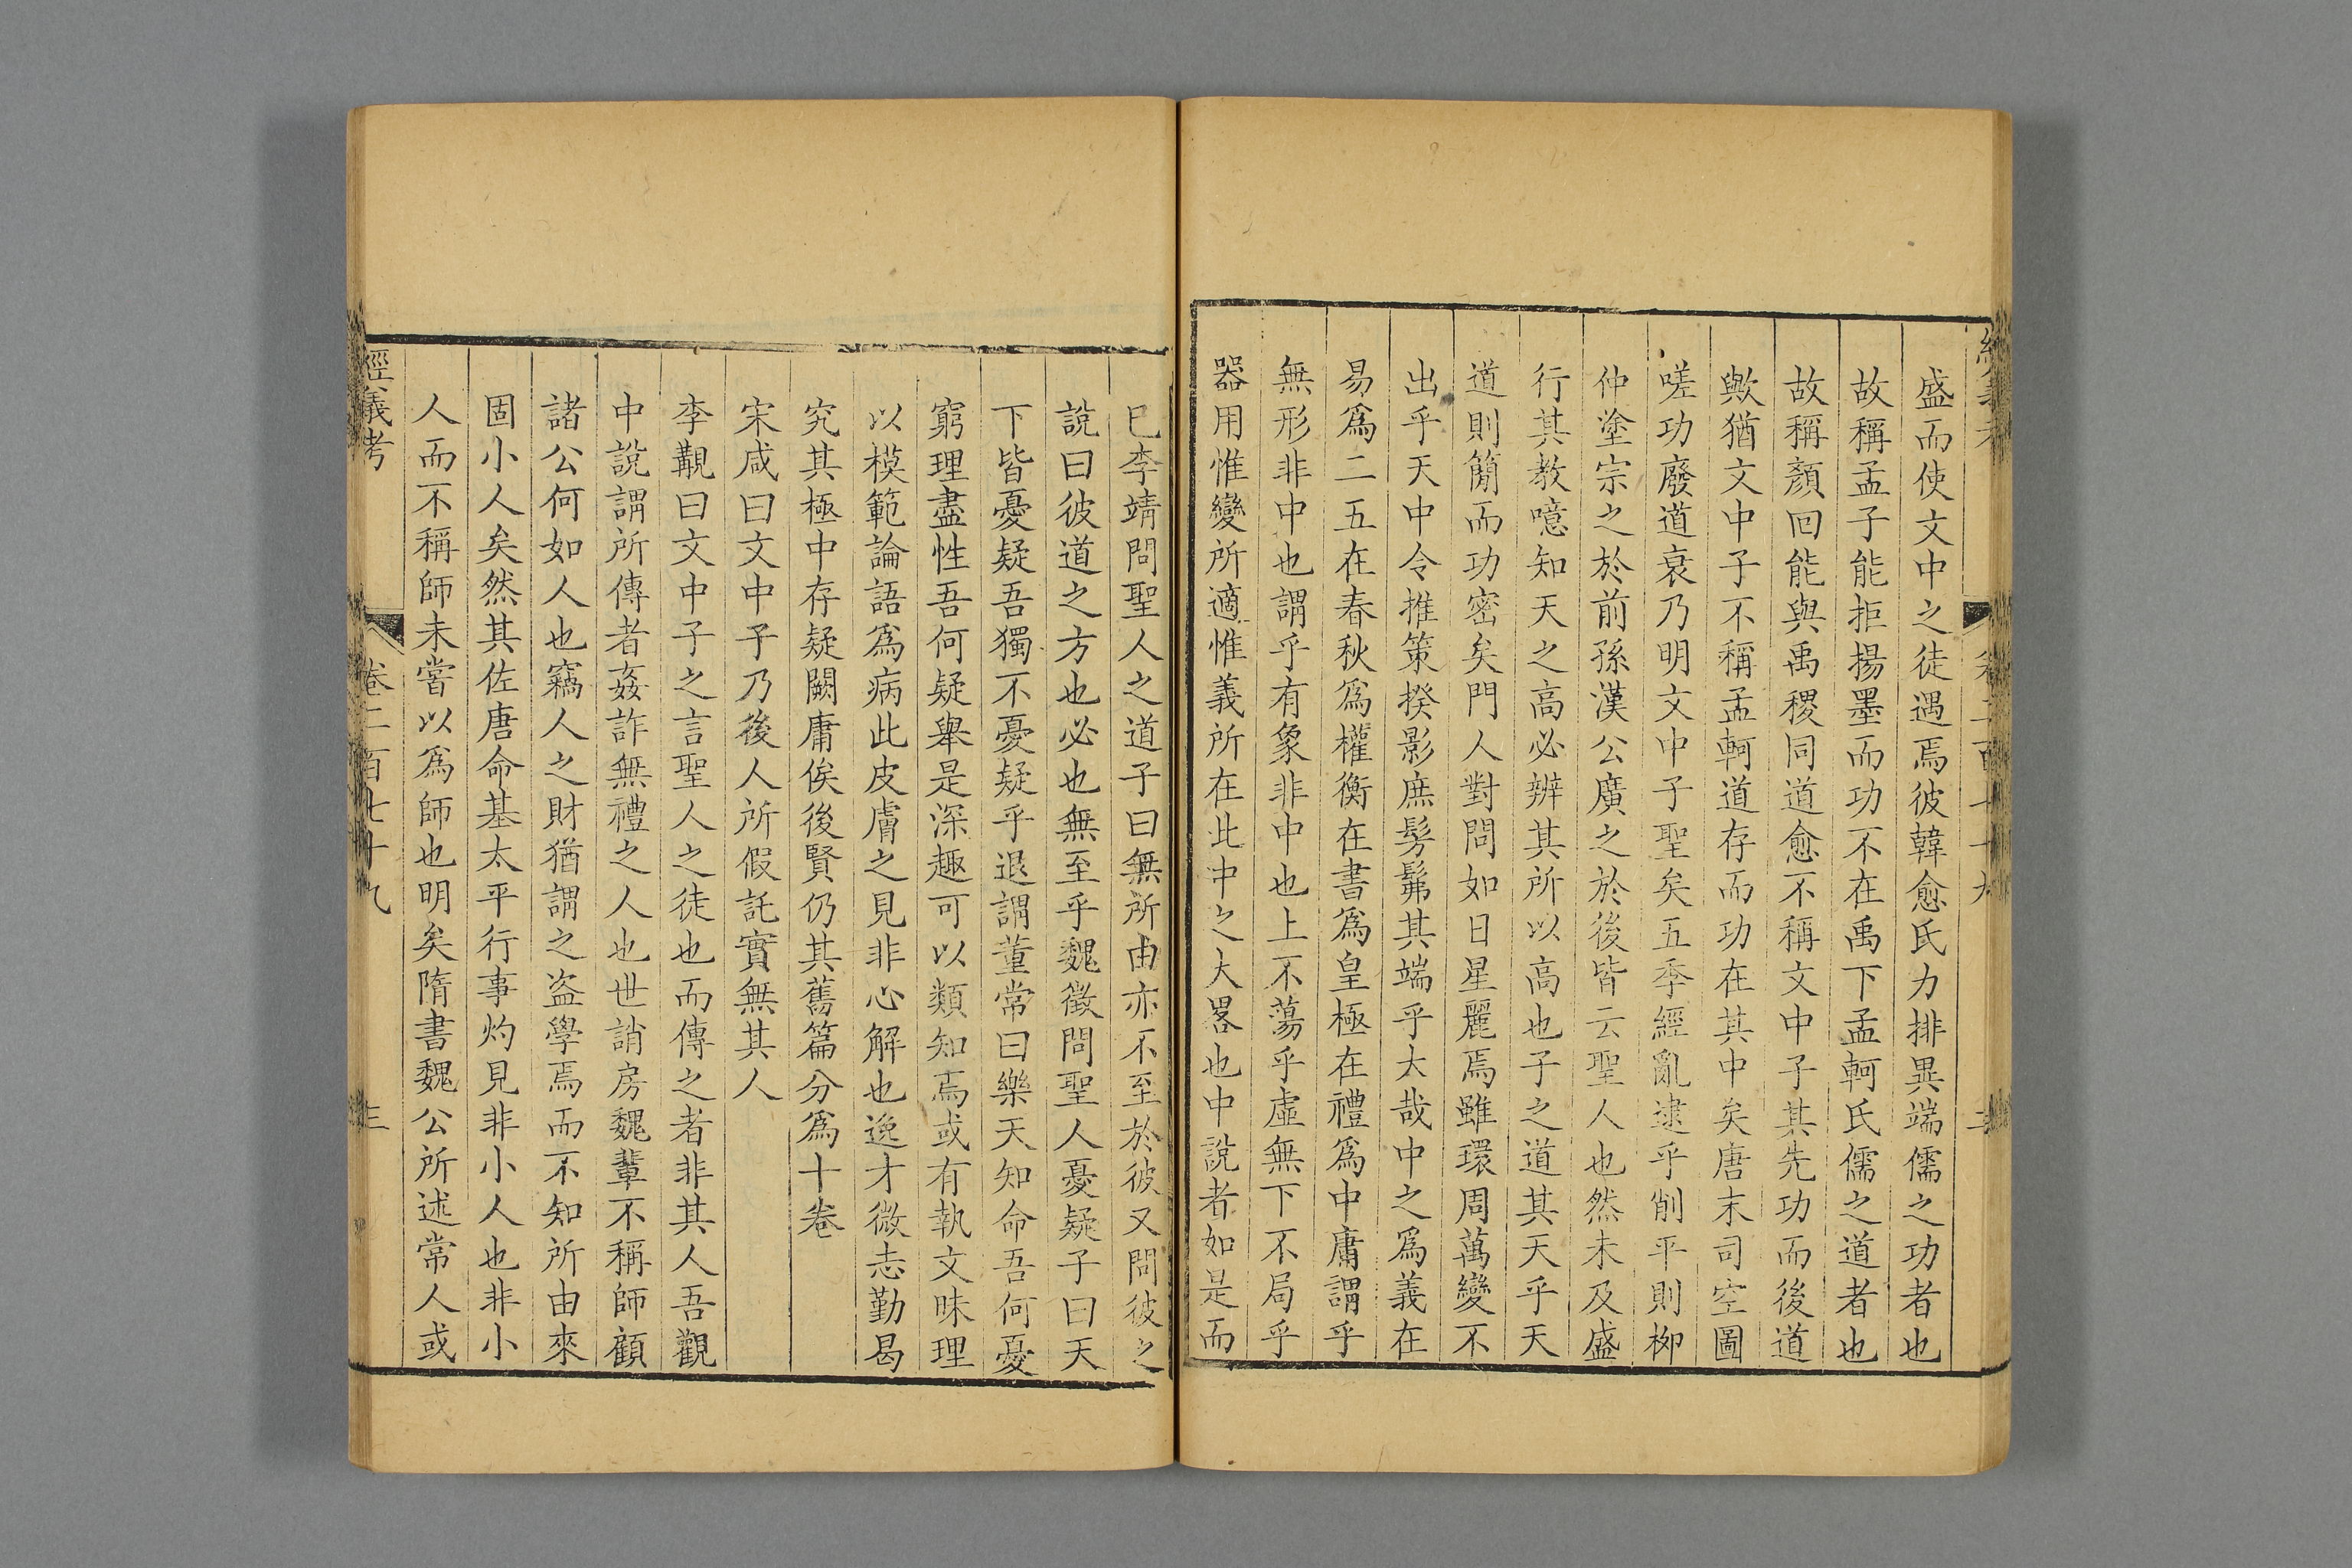 盛而使文中之徒遇焉彼韓愈氏力排異端儒之功者也
故稱孟子能拒揚墨而功不在禹下孟軻氏儒之道者也
故稱顏回能與禹稷同道愈不稱文中子其先功而後道
歟猶文中子不稱孟軻道存而功在其中矣唐末司空圖
嗟功廢道衰乃明文中子聖矣五季經亂逮乎削平則栁
仲塗宗之於前孫漢公廣之於後皆云聖人也然未及盛
行其教噫知天之高必辨其所以高也子之道其天乎天
道則簡而功密矣門人對問如日星麗焉雖環周萬變不
出乎天中令推策揆影庶髣髴其端乎大哉中之爲義在
易爲二五在春秋爲權衡在書爲皇極在禮爲中庸謂乎
無形非中也謂乎有象非中也上不蕩乎虛無下不局乎
器用惟變所適惟義所在此中之大畧也中說者如是而
已李靖問聖人之道子曰無所由亦不至於彼又問彼之
說曰彼道之方也必也無至乎魏徵問聖人憂疑子曰天
下皆憂疑吾獨不憂疑乎退謂董常曰樂天知命吾何憂
窮理盡性吾何疑舉是深趣可以類知焉或有執文昧理
以模範論語爲病此皮膚之見非心解也逸才微志勤曷
究其極中存疑闕庸俟後賢仍其舊篇分爲十卷
宋咸曰文中子乃後人所假託實無其人
李覯曰文中子之言聖人之徒也而傳之者非其人吾觀
中說謂所傳者姦詐無禮之人也世誚房魏輩不稱師顧
諸公何如人也竊人之財猶謂之盜學焉而不知所由來
固小人矣然其佐唐命基太平行事灼見非小人也非小
人而不稱師未嘗以爲師也明矣隋書魏公所述常人或
經義考 卷二百七十九 三